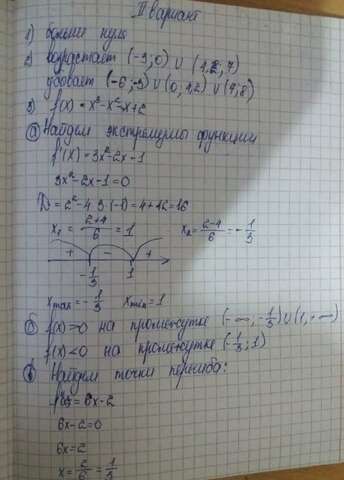 II вариант
1) больше нуля
2) возрастает (-3;0) ∪ (4,2; 7)
убывает (-6;-3) ∪ (0; 4,2) ∪ (7;8)
3) f(x) = x³-x²-x+2
а) Найдем экстремумы функции
f'(x) = 3x²-2x-1
3x²-2x-1=0
D = 2²-4·3·(-1) = 4+12=16
x₁ = 2+4/6 = 1 x₂ = 2-4/6 = -1/3
+ - +
-1/3 1
xmax = -1/3 xmin = 1
б) f(x)>0 на промежутке (-∞; -1/3) ∪ (1; +∞)
f(x)<0 на промежутке (-1/3; 1)
в) Найдем точки перегиба:
= 6x-2
6x-2=0
6x=2
x = 2/6 = 1/3